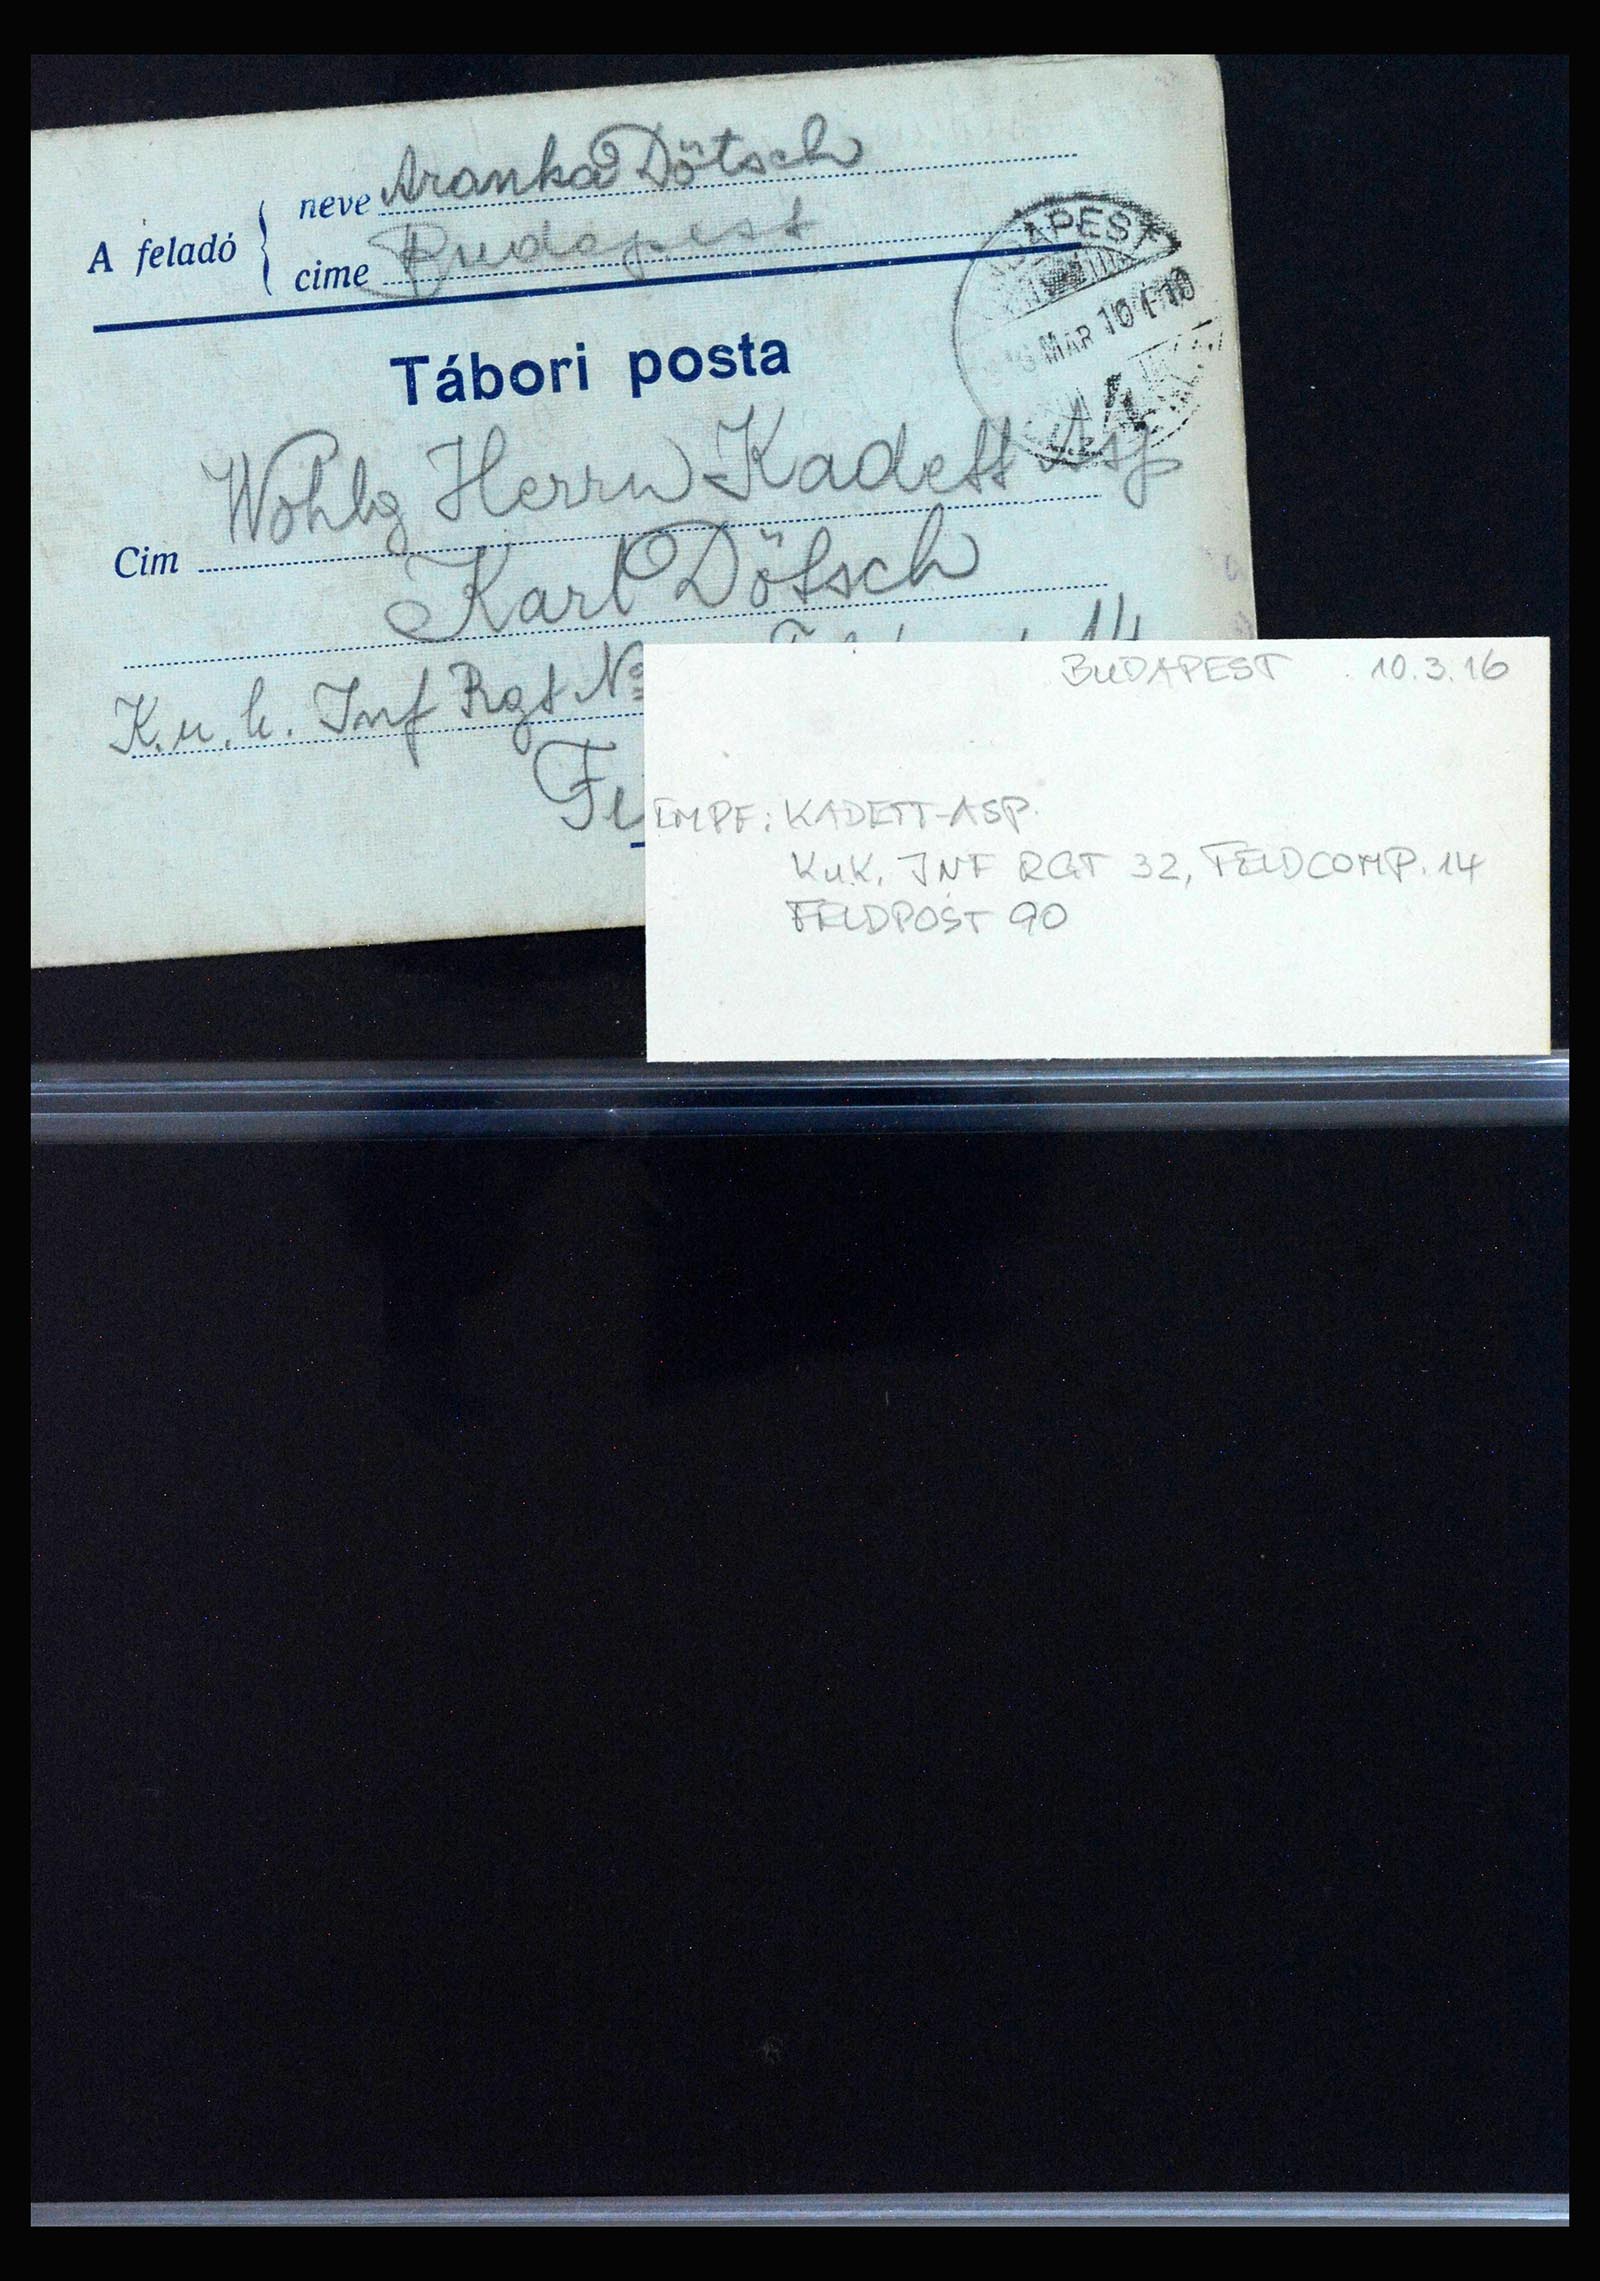 A feladó
neve Aranka Dötsch
cime Budapest
BUDAPEST
MAR 10
4
Tábori posta
Wohlg Herrn Kadett Asp
Cim
Karl Dötsch
K. u. k. Inf Rgt No 14
BUDAPEST 10.3.16
EMPF: KADETT-ASP.
KuK. INF RGT 32, FELDCOMP. 14
FELDPOST 90